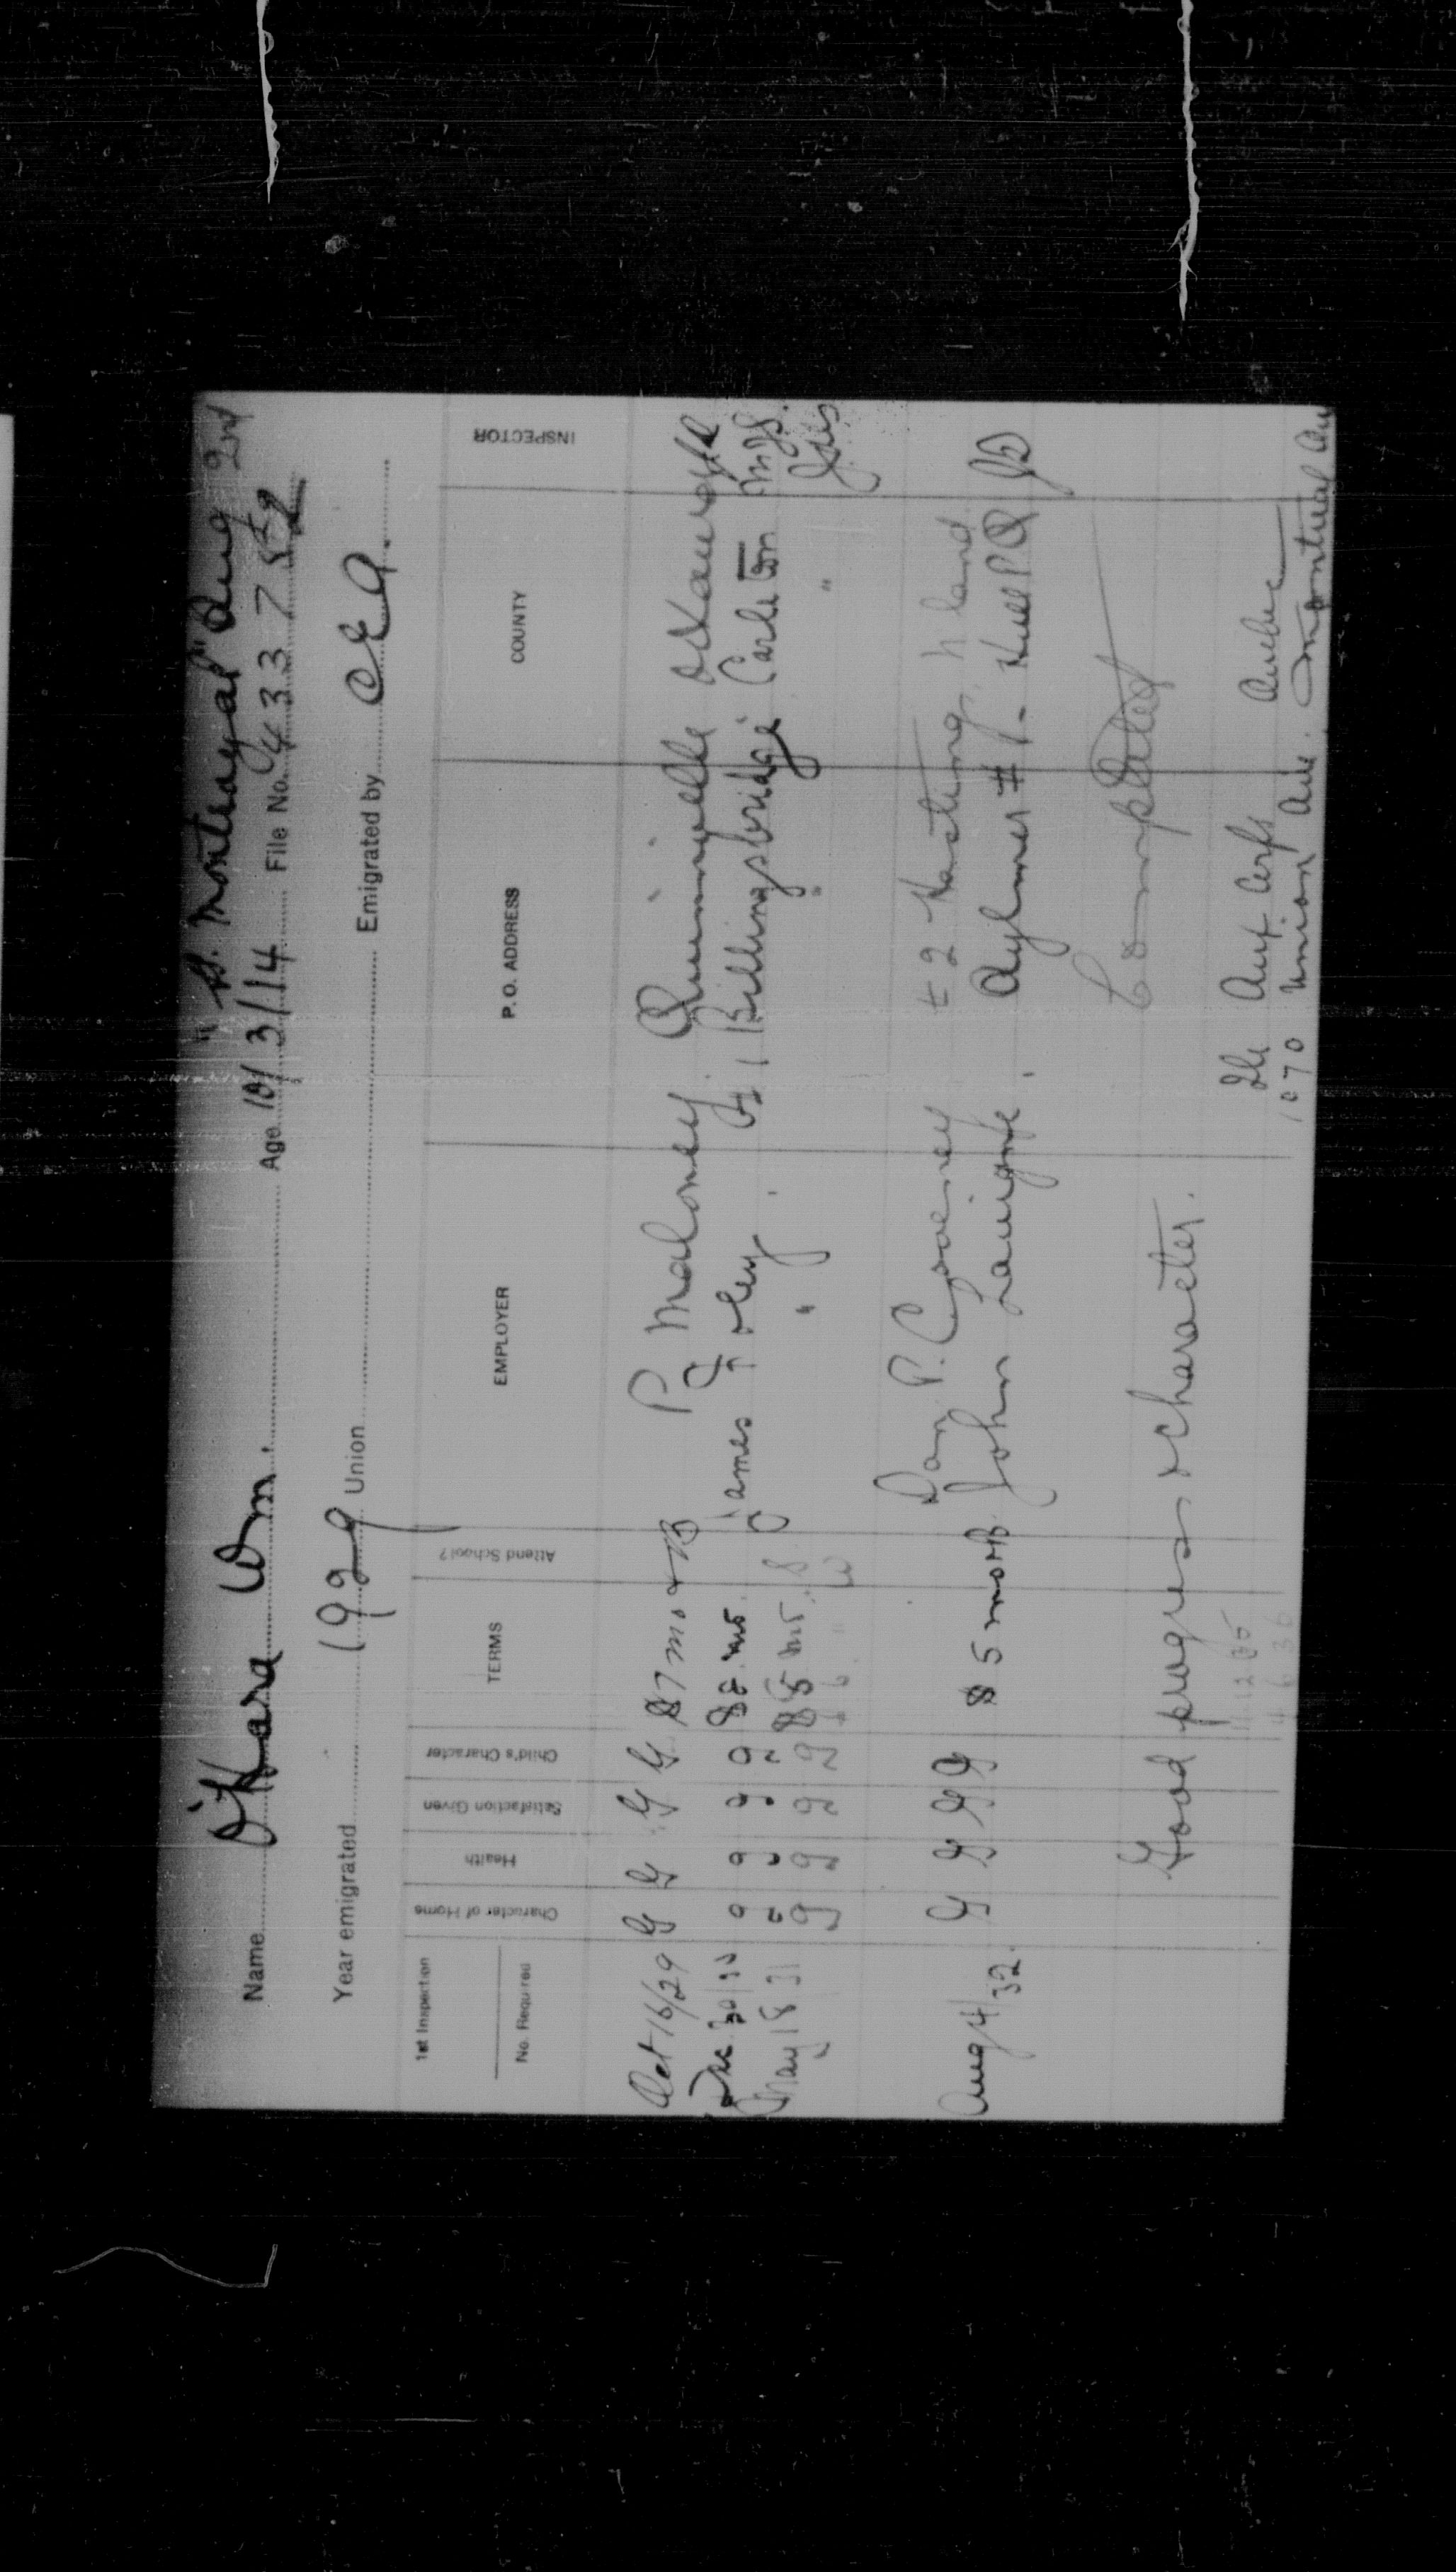 "SS. Montroyal" Aug 2nd
Name O'Hara Wm. Age 10/3/14 File No. 433752
Year emigrated 1929 Union Emigrated by CEA.
1st Inspection
No. Required Character of Home Health Satisfaction Given Child's Character TERMS Attend School? EMPLOYER P. O. ADDRESS COUNTY INSPECTOR
Oct 16/29 G G G G $7 mo + B P J Maloney. Quinnville
Dec 30/30 g g g g $8 mo. James Foley. Billingsbridge Carleton
May 18 31 g g g g $5 mo. S " " "
W
Dan P. Cooeney # 2 Hastings, land.
Aug 4/32. G G G G $ 5 mo HB John Lavigne. Aylmer # 1 - Hull P Q JD
Completed
Good progress & character.
Ile Aux Cerfs Quebec
1070 Union Ave. Montreal